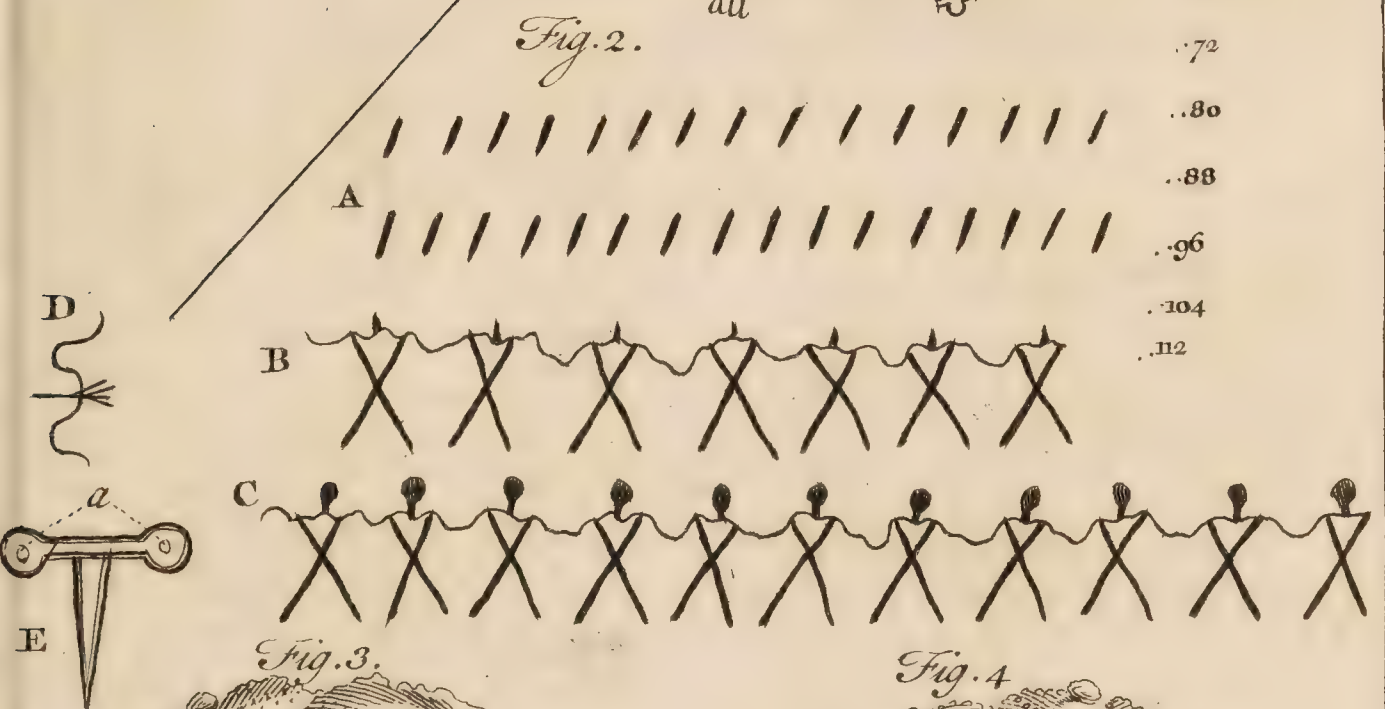 all
Fig. 2.
..72
..80
A
..88
..96
D
..104
B
..112
C
a
E
Fig. 3.
Fig. 4